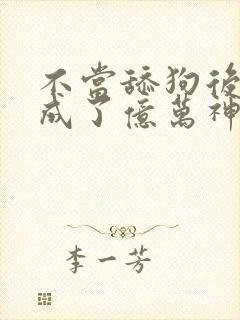 不當舔狗後
成了億萬神
李一芳